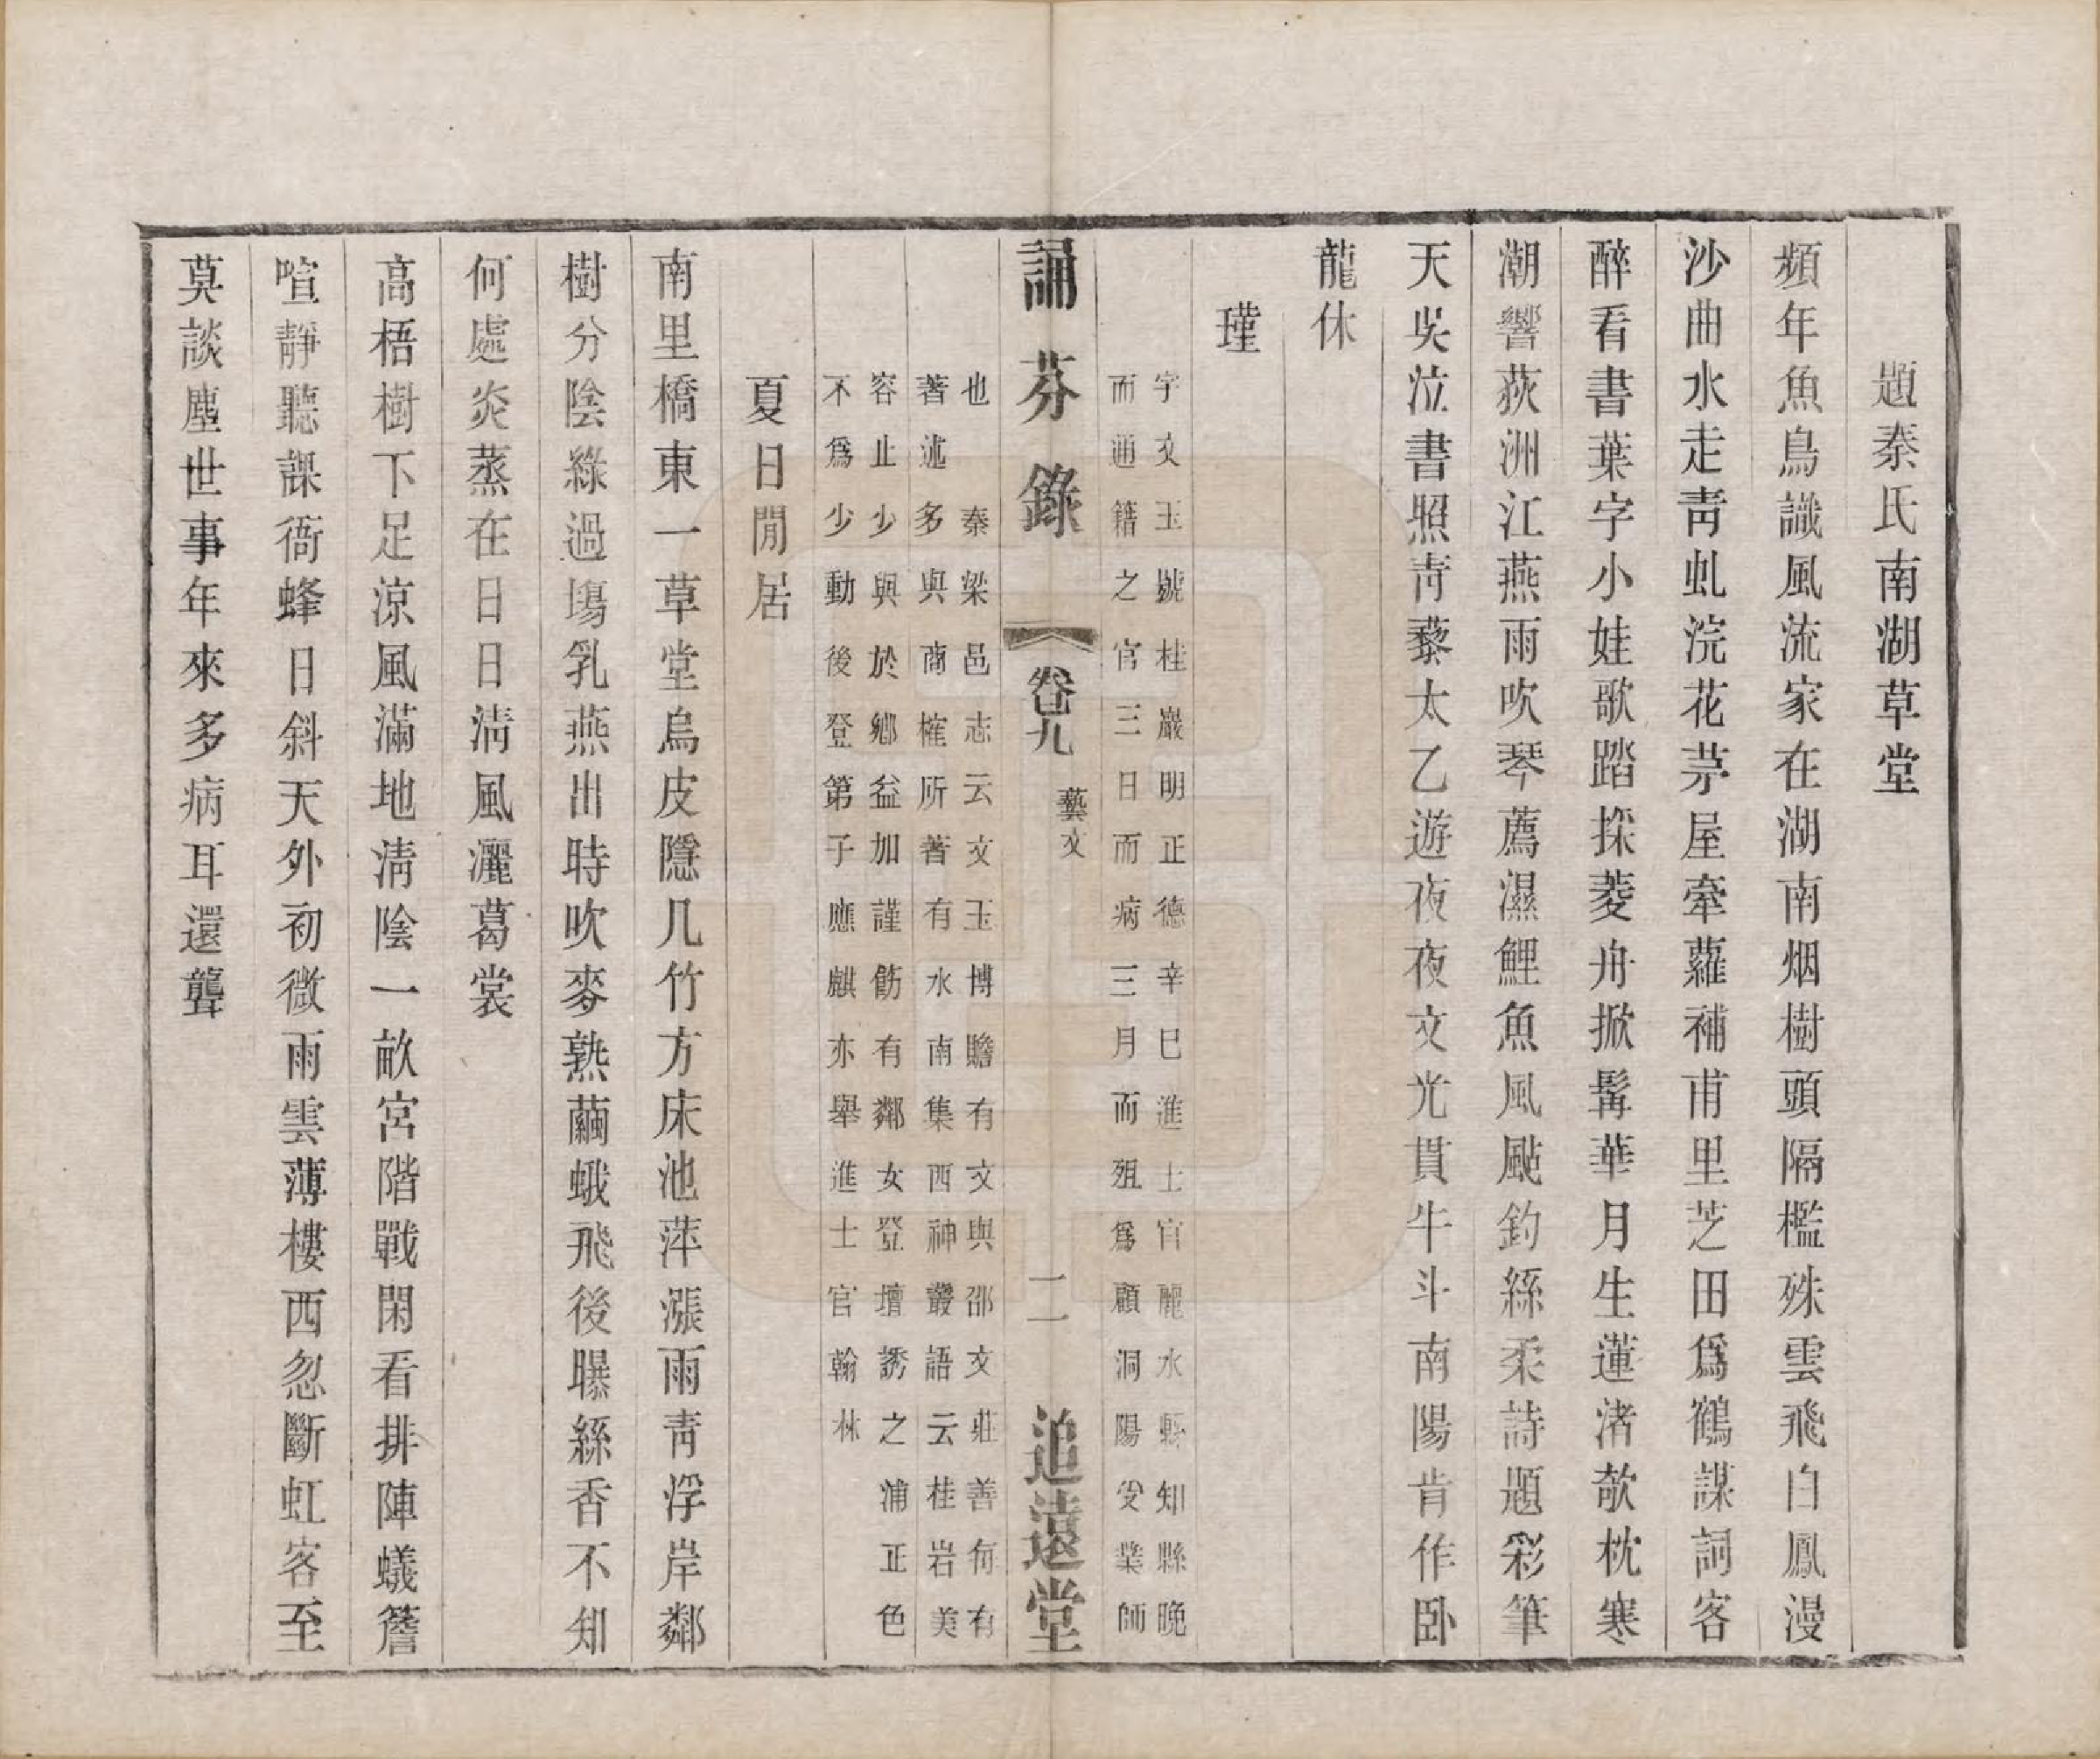 題秦氏南湖草堂
頻年魚鳥識風流家在湖南烟樹頭隔檻殊雲飛白鳳漫
沙曲水走靑虬浣花茅屋牽蘿補甫里芝田爲鶴謀詞客
醉看書葉字小娃歌踏採菱舟掀髯華月生蓮渚欹枕寒
潮響荻洲江燕雨吹琴薦濕鯉魚風颭釣絲柔詩題彩筆
天吳泣書照靑藜太乙遊夜夜文光貫牛斗南陽肯作卧
龍休
瑾
字文玉號桂巖明正德辛巳進士官麗水縣知縣晚
而通籍之官三日而病三月而殂爲顧洞陽受業師
誦芬錄
卷九
藝文
二
追遠堂
也　秦梁邑志云文玉博贍有文與邵文莊善何有
著述多與商榷所著有水南集西神叢語云桂岩美
容止少與於鄉益加謹飭有鄰女登壇誘之浦正色
不爲少動後登第子應麒亦舉進士官翰林
夏日閒居
南里橋東一草堂烏皮隱几竹方床池萍漲雨靑浮岸鄰
樹分陰綠過塲乳燕出時吹麥熟繭蛾飛後曝絲香不知
何處炎蒸在日日淸風灑葛裳
高梧樹下足涼風滿地淸陰一畝宮階戰閑看排陣蟻簷
喧靜聽課衙蜂日斜天外初微雨雲薄樓西忽斷虹客至
莫談塵世事年來多病耳還聾